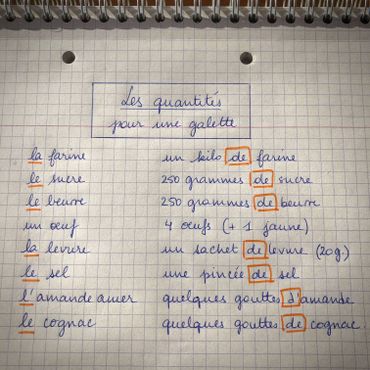 Les quantités
pour une galette
la farine un kilo de farine
le sucre 250 grammes de sucre
le beurre 250 grammes de beurre
un œuf 4 œufs (+ 1 jaune)
la levure un sachet de levure (20g.)
le sel une pincée de sel
l'amande amer quelques gouttes d'amande
le cognac quelques gouttes de cognac